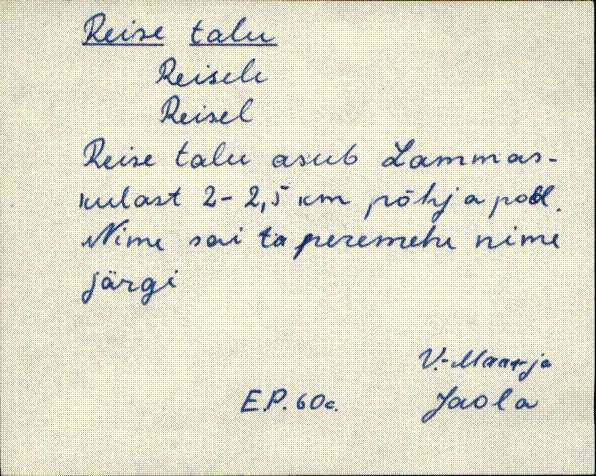 Reise talu
Reisele
Reisel
Reise talu asub Lammas-
kulast 2-2,5 km põhja pool.
Nime sai ta peremehe nime
järgi
V.-Maarja
E.P. 60a. Jaola